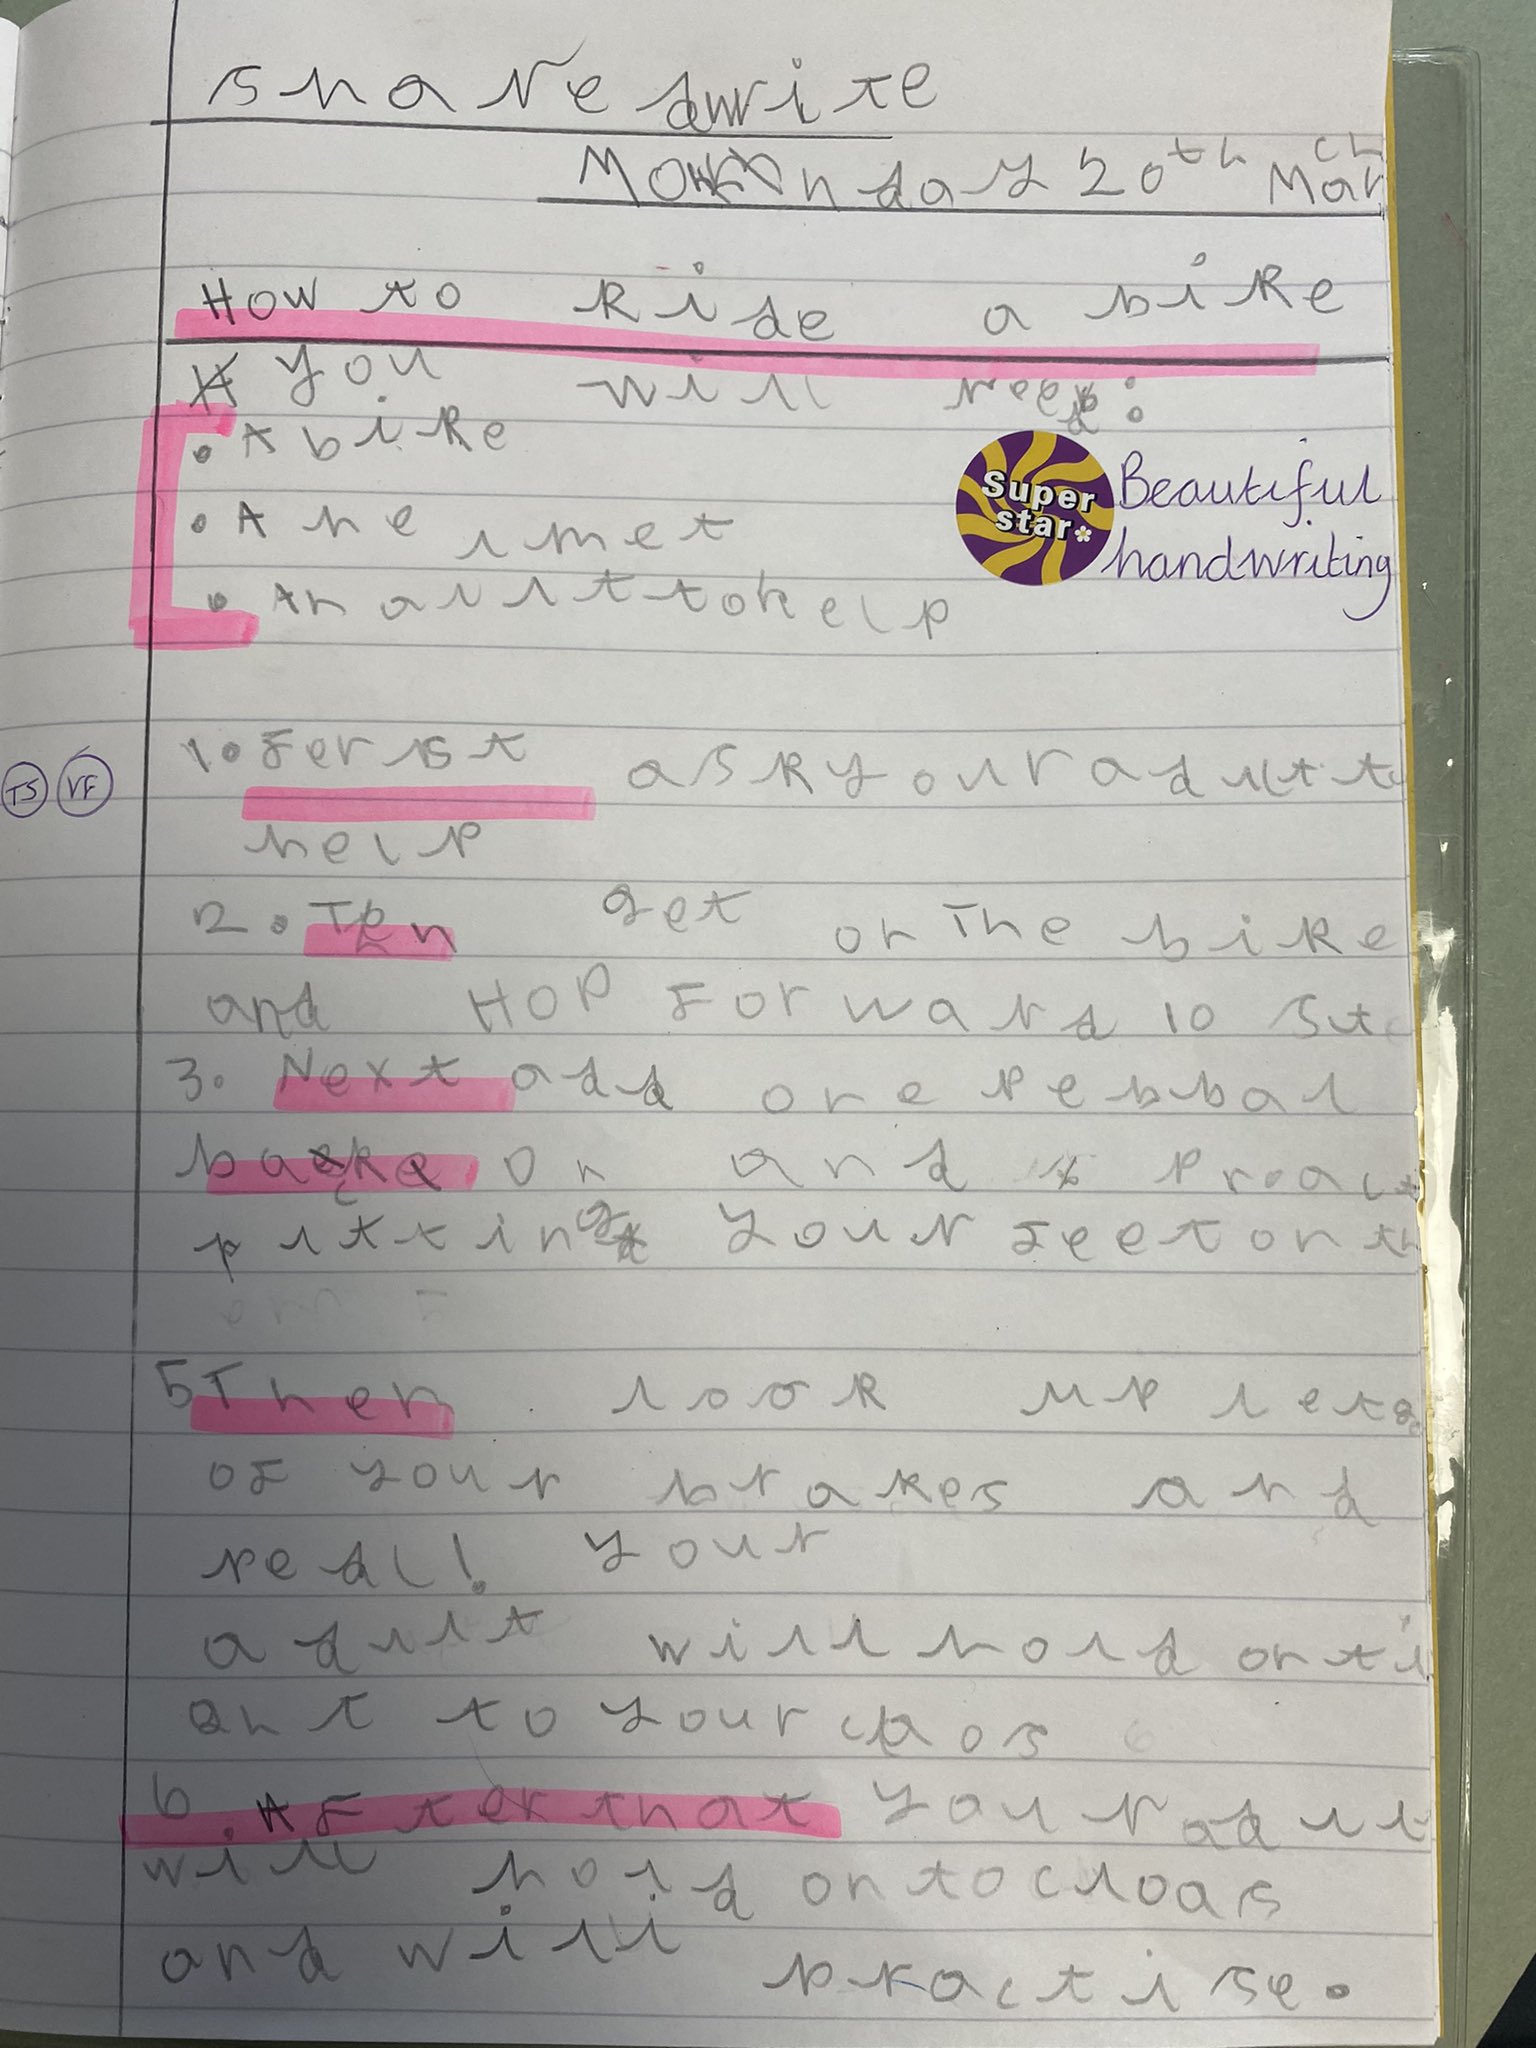 Shared write
Monday 20th March
How to Ride a bike
you will need:
• A bike
• A helmet
• An allttohelp
Super
star
Beautiful
handwriting
1. Ferst ask your adultt
TS VF
help
2. Then get on The bike
and HOP Forward 10
3. Next add one Pebbal
backe On and
putting your Feet on
5 Then look up let
of your brakes and
pedl! your
adult will hold
to your
6. AFter that your adult
will hold onto cloas
and will practise.